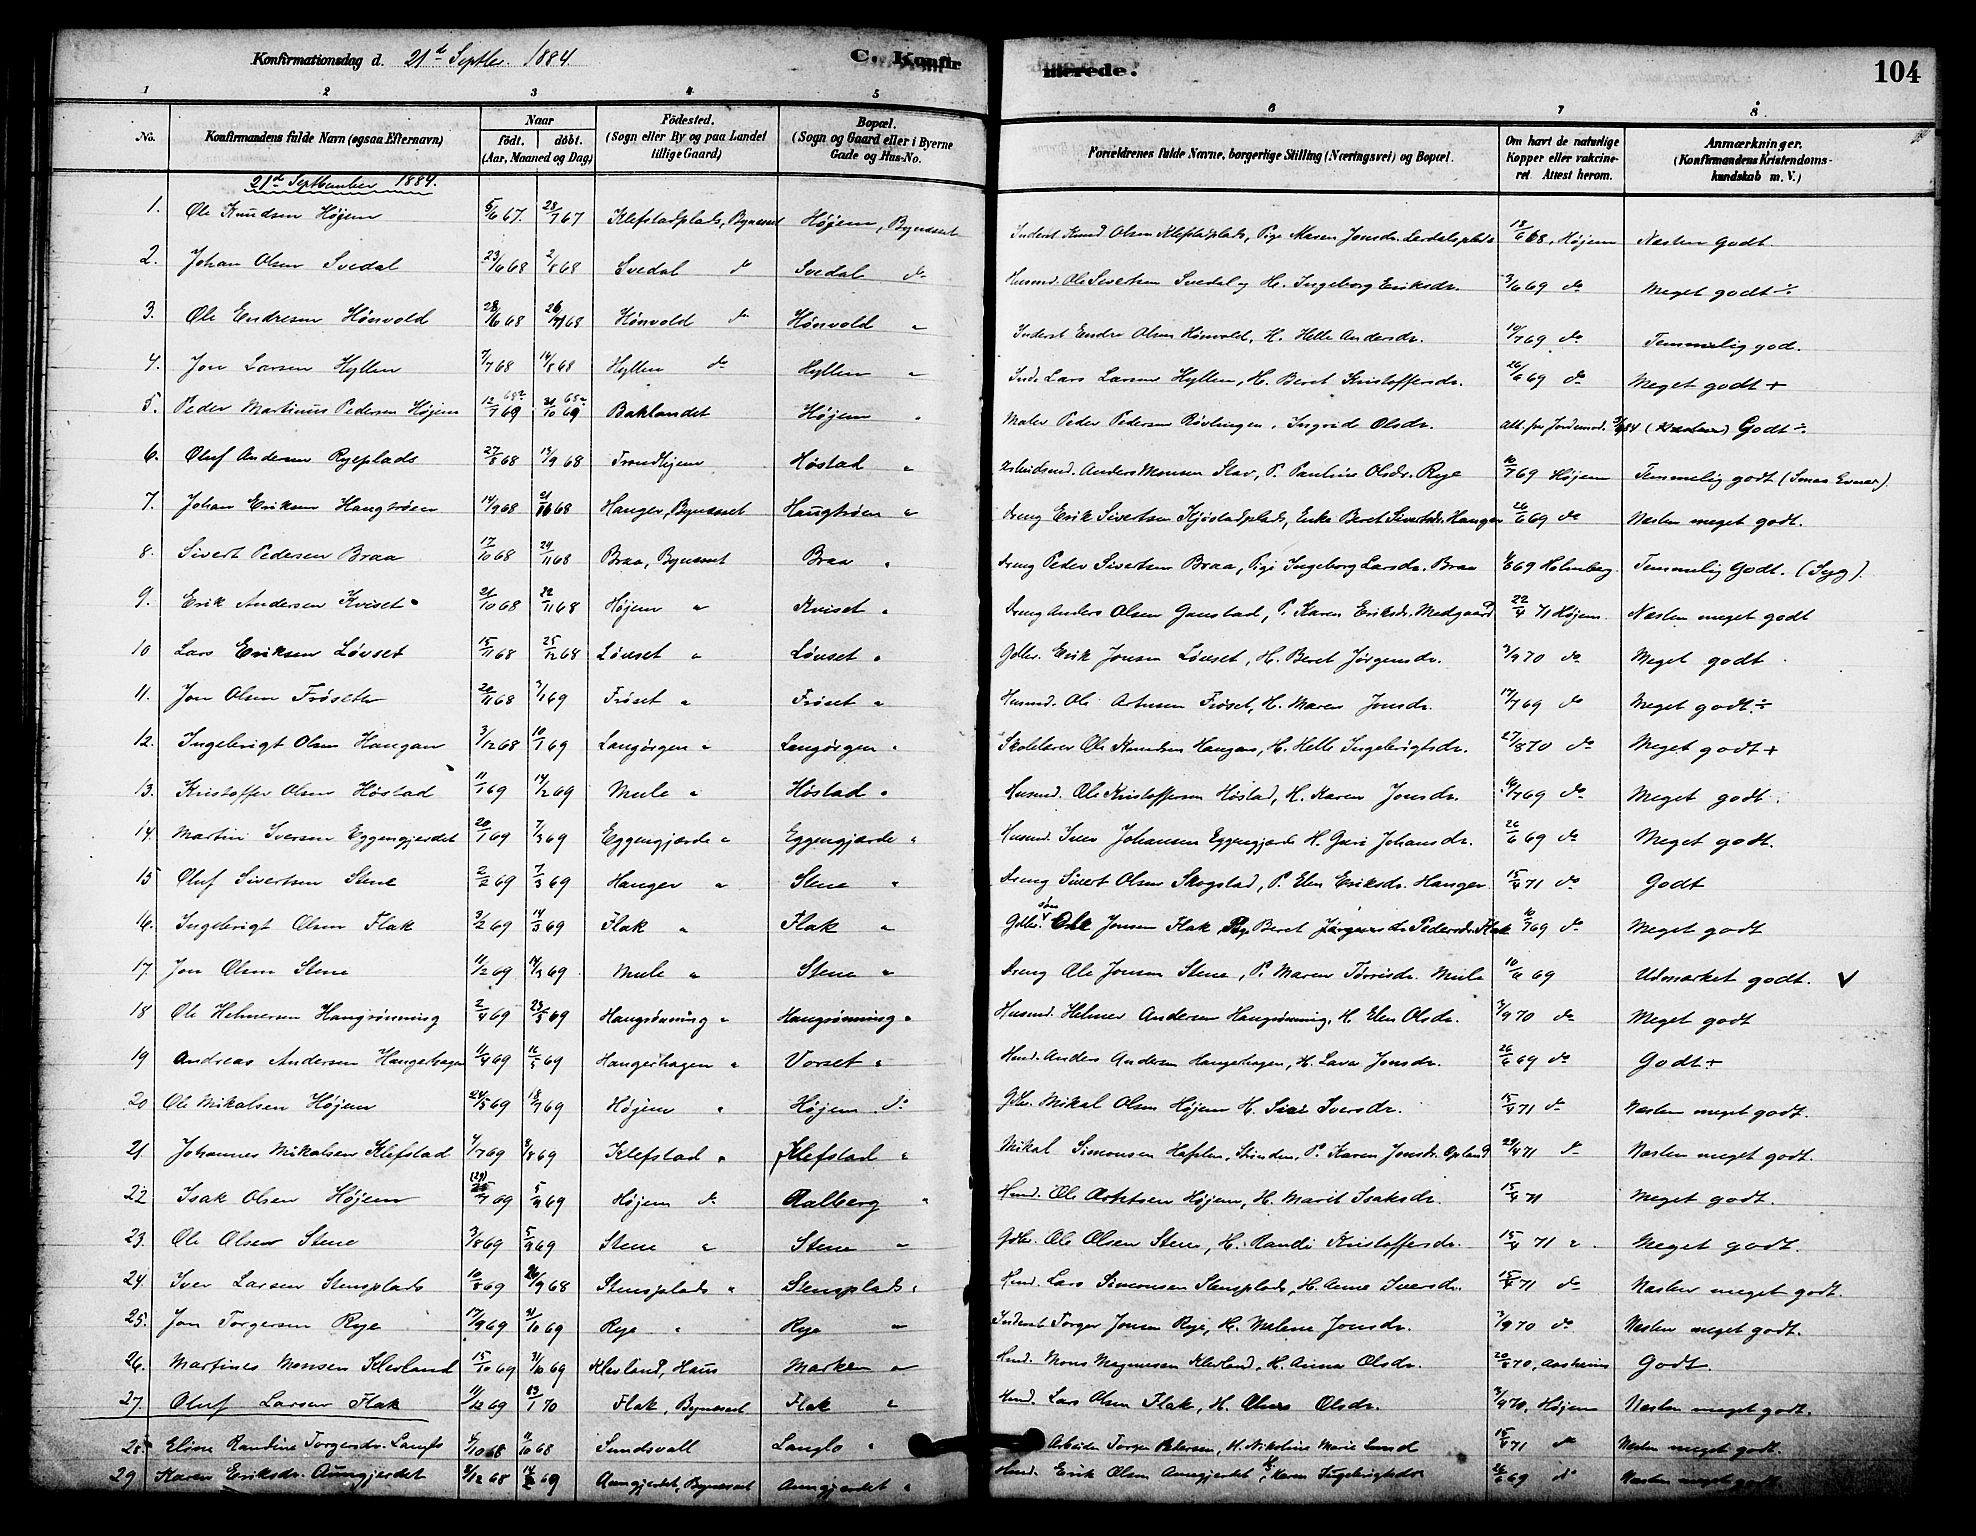 Konfirmationsdag d. 21de Septbr. 1884. C. Konfirmerede. 104
1 2 3 4 5 6 7 8.
No. Konfirmandens fulde Navn (ogsaa Efternavn) Naar födt. döbt. (Aar, Maaned og Dag) Födested. (Sogn eller By og paa Landet tillige Gaard) Bopæl. (Sogn og Gaard eller i Byerne Gade og Hus-No. Forældrenes fulde Navne, borgerlige Stilling (Næringsvei) og Bopæl. Om havt de naturlige Kopper eller vakcineret. Attest herom. Anmærkninger. (Konfirmandens Kristendomskundskab m. V.)
21de September 1884.
1. Ole Knudsen Højem 5/6 67. 28/7 67 Klefstadplads, Bynesset Højem, Bynesset Inderst Knud Olsen Klefstadplads, Pige Maren Jonsdr. 68, Højem Næsten godt
2. Johan Olsen Svedal 23/6 68 2/8 68 Svedal do Svedal do Husmd. Ole Sivertsen Svedal og H. Ingeborg Eriksdr. 3/6 69 do Meget godt ÷
3. Ole Endresen Hønvold 28/6 68 26/7 68 Hønvold do Hønvold " Inderst Endre Olsen Hønvold, H. Helle Andersdr. 10/7 69 do Temmelig god.
4. Jon Larsen Hyllen 7/7 68 14/8 68 Hyllen do Hyllen " Inds. Lars Larsen Hyllen, H. Beret Kristoffersdr. 26/6 69 do Meget godt +
5. Peder Martinus Pedersen Højem 12/7 69 31/10 69 Baklandet Højem " Maler Peder Pedersen Røvlingen, Ingrid Olsdr. Att. fra Jordemod. Godt ÷
6. Oluf Andersen Ryeplads 27/8 68 14/9 68 Trondhjem Høstad " Arbeidsmd. Anders Monsen Slav, P. Pauline Olsdr. Rye 10/7 69 Højem Temmelig godt (Smaa Evner)
7. Johan Eriksen Haugtrøen 14/9 68 68 Hanger, Bynesset Haugtrøen " Dreng Erik Sivertsen Kjøstadplads, Enke Beret Sivertsdr. Hanger 26/6 69 do Næsten meget godt.
8. Sivert Pedersen Braa 17/10 68 24/11 68 Braa, Bynesset Braa " Dreng Peder Sivertsen Braa, Pige Ingeborg Larsdr. Braa 69 Holmberg. Temmelig Godt. (Syg).
9. Erik Andersen Kviset 21/10 68 22/11 68 Højem " Kviset " Dreng Anders Olsen Gaustad, P. Karen Eriksdr. Medgaard 22/4 71 Højem. Næsten meget godt
10 Lars Eriksen Løvset 15/11 68 25/12 68 Løvset " Løvset " Gdbr. Erik Jonsen Løvset, H. Beret Jørgensdr. 3/9 70 do Meget godt
11. Jon Olsen Frøseth 20/11 68 3/1 69 Frøset " Frøset " Husmd. Ole Arntsen Frøset, H. Maren Jonsdr. 14/7 69 do Meget godt ÷
12. Ingebrigt Olsen Hangan 3/12 68 10/1 69 Langørgen " Langørgen " Skolelærer Ole Knudsen Hangan, H. Helle Ingebrigtsdr. 27/8 70 do Meget godt +
13. Kristoffer Olsen Høstad 11/1 69 14/2 69 Mule " Høstad " Husmd. Ole Kristoffersen Høstad, H. Karen Jonsdr. 10/7 69 do Meget godt.
14. Martin Iversen Eggengjerdet 20/1 69 7/3 69 Eggengjærde " Eggengjærde " Husmd. Iver Johansen Eggengjærde H. Guri Johansdr. 26/6 69 do Meget godt.
15 Oluf Sivertsen Stene 2/2 69 7/3 69 Hanger " Stene " Dreng Sivert Olsen Skogstad, P. Elen Eriksdr. Hanger 15/4 71 do Godt
16. Ingebrigt Olsen Flak 3/2 69 14/3 69 Flak " Flak " Gdbr. søn Ole Jonsen Flak, Pig. Beret Pedersdr. Flak 10/7 69 do Meget godt
17. Jon Olsen Stene 11/2 69 14/3 69 Mule " Stene " Dreng Ole Jonsen Stene, P. Maren Torrisdr. Mule 10/6 69 Udmærket godt. V
18 Ole Helmersen Haugrønning 2/4 69 23/5 69 Haugrønning " Haugrønning " Husmd. Helmer Andersen Haugrønning, H. Elen Olsdr. 3/9 70 do Meget godt
19 Andreas Andersen Hangerhagen 11/4 69 16/5 69 Hangerhagen " Vorset " Hmd. Anders Andersen Hangerhagen, H. Lava Jonsdr. 26/6 69 do Godt +
20 Ole Mikalsen Højem 24/5 69 18/7 69 Højem " Højem do Gdbr. Mikal Olsen Højem H. Iversdr. 15/4 71 do Næsten meget godt.
21. Johannes Mikalsen Klefstad 4/7 69 8/8 69 Klefstad " Klefstad " Mikal Simonsen Haflen, Strinden, P. Karen Jonsdr. Opland 29/4 71 do Næsten meget godt.
22 Isak Olsen Højem (29) 25/7 69 5/9 69 Højem do Aalberg " Hmd. Ole Arntsen Højem, H. Marit Isaksdr. 15/4 71 Meget godt.
23. Ole Olsen Stene 3/8 69 5/9 69 Stene " Stene " Gdbr. Ole Olsen Stene, H. Randi Kristoffersdr. 15/4 71 " Meget godt.
24. Iver Larsen Stensplads 10/8 69 26/9 68 Stensplads " Stensplads " Hmd. Lars Simonsen Stensplads, H. Anne Iversdr. 15/4 71 do Næsten meget godt.
25. Jon Torgersen Rye 17/9 69 31/10 69 Rye " Rye " Inderst Torger Jonsen Rye, H. Malene Jonsdr. 3/9 70 do Næsten meget godt.
26. Martines Monsen Klevland 15/10 69 31/10 69 Klevland, Haus Marken " Hmd. Mons Magnusen Klevland, H. Anna Olsdr. 70, Godt.
27. Oluf Larsen Flak 11/12 69 23/1 70 Flak, Bynesset Flak " Hmd. Lars Olsen Flak, H. Olsdr. 3/9 70, Højem Næsten meget godt.
28 Eline Randine Torgersdr. Langlo 4/10 68 68 Sundsvall Langlo " Arbeider Torger Petersen, H. Nikoline Marie Lund 15/4 71 do Næsten meget godt.
29 Karen Eriksdr. Aungjerdet 3/12 68 14/2 69 Aungjerdet, Bynesset Aungjerdet " Hmd. Erik Olsen Aungjerdet, H. Karen Ingebrigtsdr 26/6 69 do Næsten meget godt.